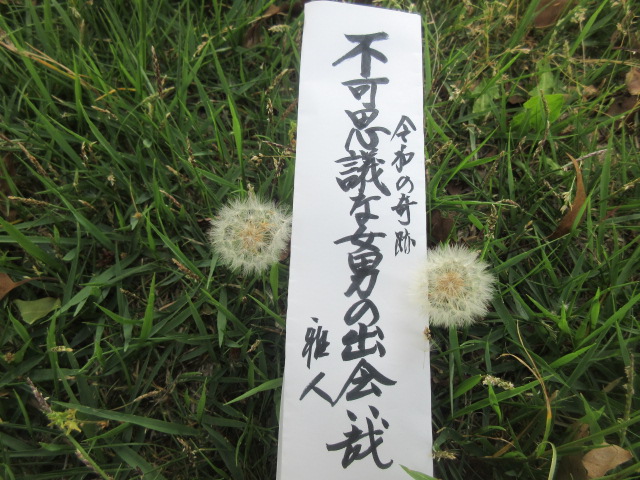 令和の奇跡
不可思議な女男の出会い哉
雅人